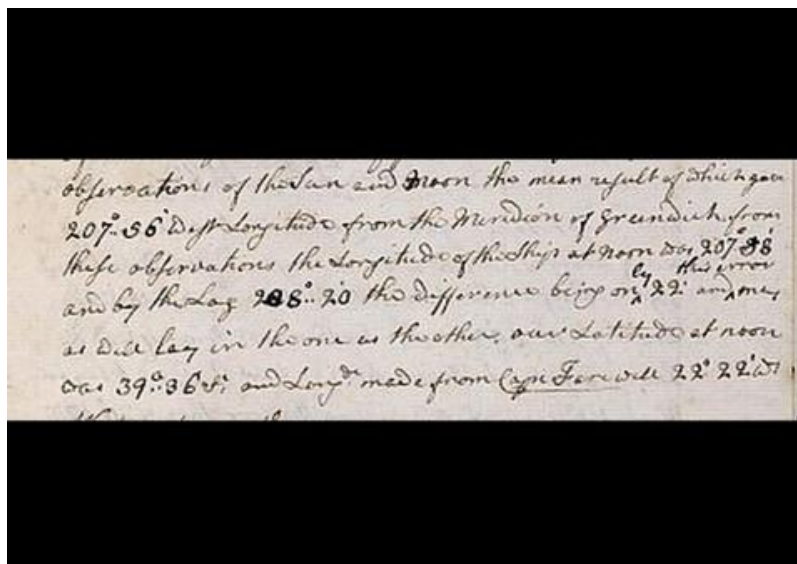 observations of the Sun and Moon the mean result of which gave
207°..56' West Longitude from the Meridion of Greenwich from
these observations the Longitude of the Ship at noon was 207° 58'
and by the Log 208°..20' the difference being only 22' and this error may
as well lay in the one as the other, our Latitude at noon
was 39°..36' S. and Longde made from Cape Farewell 22° 22' Wt